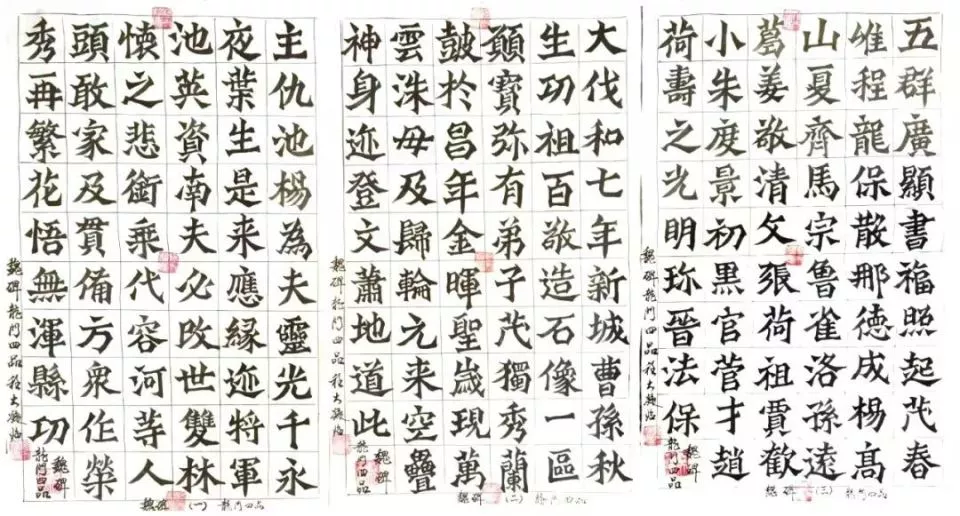 主仇池楊為夫靈光千永
夜葉生是来應緣迹将軍
池英資南夫必改世雙林
懷之悲銜乘代容河等人
頭敢家及貫備方衆作榮
秀再繁花悟無渾縣功
魏碑
龍門四品
魏碑龍門四品程大臨
魏碑(一)龍門四品
大伐和七年新城曹孫秋
生功祖百敬造石像一區
顯寶弥有弟子茂獨秀蘭
皷於昌年金暉聖歲現萬
雲洙毋及歸輪元来空疊
神身迹登文蕭地道此
魏碑
龍門四品
魏碑龍門四品程大臨
魏碑(二)龍門四品
五群廣顯書福照起茂春
維程龍保散那德成楊高
山夏齊馬宗魯雀洛孫遠
葛姜敬清父張荷祖賈歡
小朱度景初黒官菅才趙
荷壽之光明珎晉法保
魏碑
龍門四品
魏碑龍門四品程大臨
魏碑(三)龍門四品